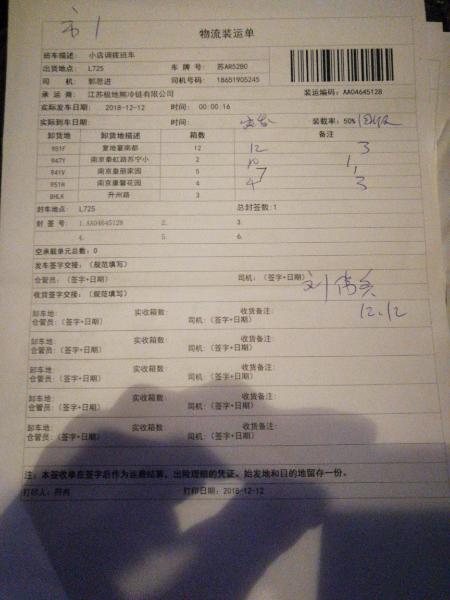 市1
物流装运单
班车描述: 小店调拨班车
出货地点: L725 车牌号: 苏AR5280
司机: 郭思进 司机号码: 18651905245
承运商: 江苏极地熊冷链有限公司 装运编码: AA04645128
实际发车日期: 2018-12-12 时间: 00:00:16
实际到车日期: 时间: 实发 装载率: 50% 回收
卸货地 卸货地描述 箱数 备注
951F 复地宴南都 12 12 3
947Y 南京秦虹路苏宁小 2 1,
941V 南京康丽家园 5 7 1
951R 南京康馨花园 4 4 3
8HLK 升州路 3
封车地点: L725 总封签数:1
封签号: 1.AA04645128 2. 3.
4. 5. 6.
空承载单元总数: 0
发车签字交接:（规范填写）
仓管员:（签字+日期） 司机:（签字+日期）
收货签字交接:（规范填写）
12.12
卸车地: 实收箱数: 收货备注:
仓管员:（签字+日期） 司机:（签字+日期）
卸车地: 实收箱数: 收货备注:
仓管员:（签字+日期） 司机:（签字+日期）
卸车地: 实收箱数: 收货备注:
仓管员:（签字+日期） 司机:（签字+日期）
卸车地: 实收箱数: 收货备注:
仓管员:（签字+日期） 司机:（签字+日期）
卸车地: 实收箱数: 收货备注:
仓管员:（签字+日期） 司机:（签字+日期）
注: 本签收单在签字后作为运费结算、出险理赔的凭证。始发地和目的地留存一份。
打印人: 打印日期: 2018-12-12